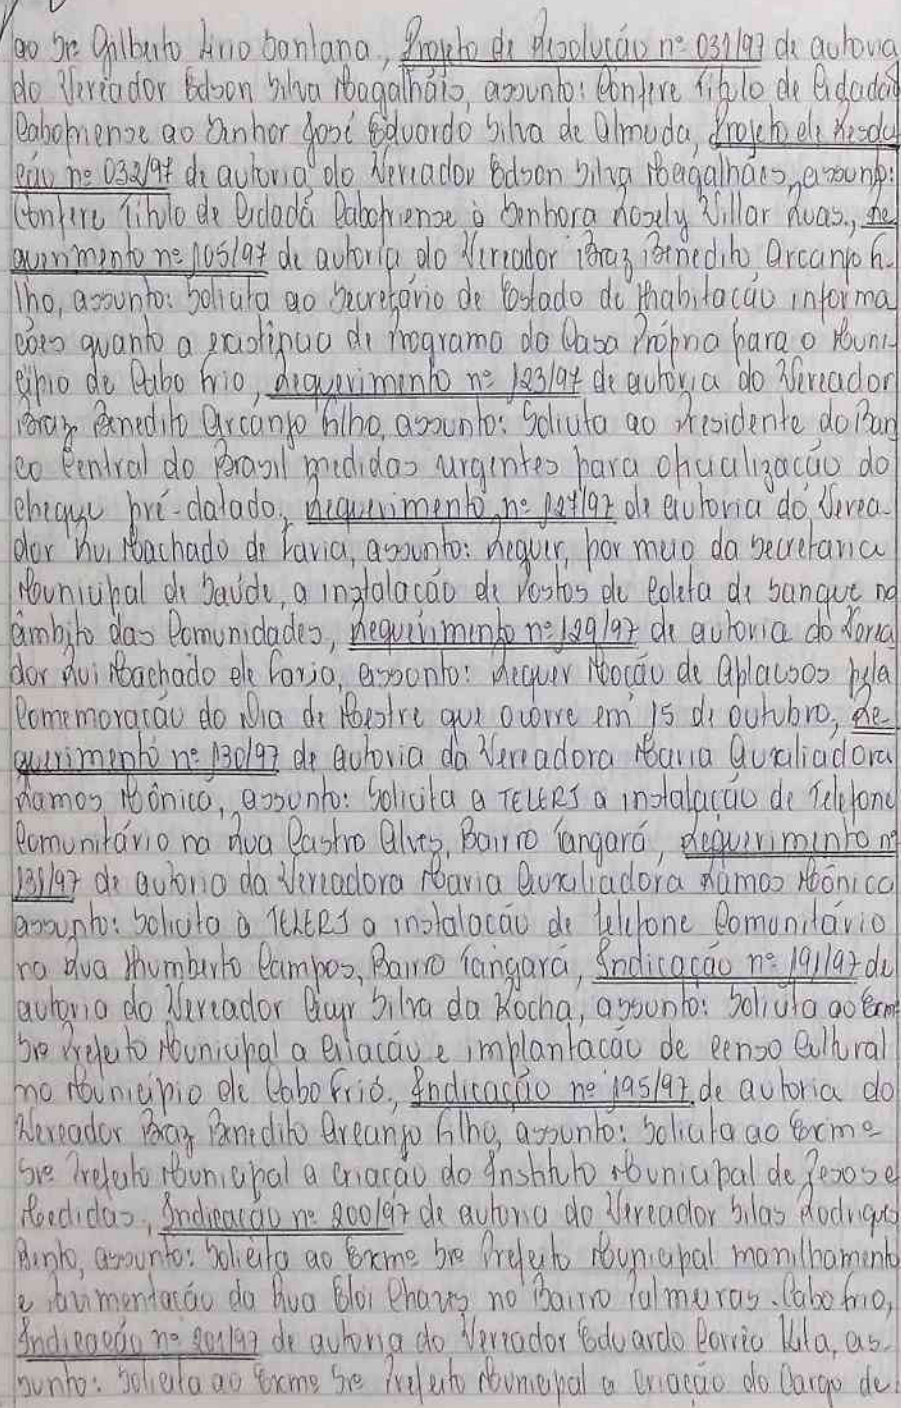 ao Sr. Gilberto Lirio Santana, Projeto de Resolução nº 031/97 de autoria
do Vereador Edson Silva Magalhães, assunto: Confere Título de Cidadão
Cabofriense ao Senhor José Eduardo Silva de Almeida, Projeto de Resolu
ção nº 032/97 de autoria do Vereador Edson Silva Magalhães, assunto:
Confere Título de Cidadã Cabofriense à Senhora Rosely Villar Ruas, Re
querimento nº 105/97 de autoria do Vereador Braz Benedito Arcanjo Fi-
lho, assunto: Solicita ao Secretário de Estado de Habitação informa
ções quanto a existência de Programa da Casa Própria para o Muni-
cípio de Cabo Frio, Requerimento nº 123/97 de autoria do Vereador
Braz Benedito Arcanjo Filho, assunto: Solicita ao Presidente do Ban
co Central do Brasil medidas urgentes para oficialização do
cheque pré-datado, Requerimento nº 127/97 de autoria do Verea-
dor Rui Machado de Faria, assunto: Requer, por meio da Secretaria
Municipal de Saúde, a instalação de Postos de Coleta de Sangue no
âmbito das Comunidades, Requerimento nº 129/97 de autoria do Verea
dor Rui Machado de Faria, assunto: Requer Moção de Aplausos pela
Comemoração do Dia de Mestre que ocorre em 15 de outubro, Re-
querimento nº 130/97 de autoria da Vereadora Maria Auxiliadora
Ramos Mônica, assunto: Solicita a TELERJ a instalação de Telefone
Comunitário na Rua Castro Alves, Bairro Jangará, Requerimento nº
131/97 de autoria da Vereadora Maria Auxiliadora Ramos Mônica
assunto: Solicita à TELERJ a instalação de telefone Comunitário
na Rua Humberto Campos, Bairro Jangará, Indicação nº 191/97 de
autoria do Vereador Silva da Rocha, assunto: Solicita ao Exmº
Srº Prefeito Municipal a Criação e implantação de Censo Cultural
no Município de Cabo Frio, Indicação nº 195/97 de autoria do
Vereador Braz Benedito Arcanjo Filho, assunto: Solicita ao Exmº
Srº Prefeito Municipal a criação do Instituto Municipal de Pesos e
Medidas, Indicação nº 200/97 de autoria do Vereador Silas Rodrigues
Bento, assunto: Solicita ao Exmº Srº Prefeito Municipal manilhamento
e pavimentação da Rua Elói Chaves no Bairro Palmeiras. Cabo Frio,
Indicação nº 201/97 de autoria do Vereador Eduardo Corrêa Kita, as-
sunto: Solicita ao Exmº Srº Prefeito Municipal a Criação do Cargo de